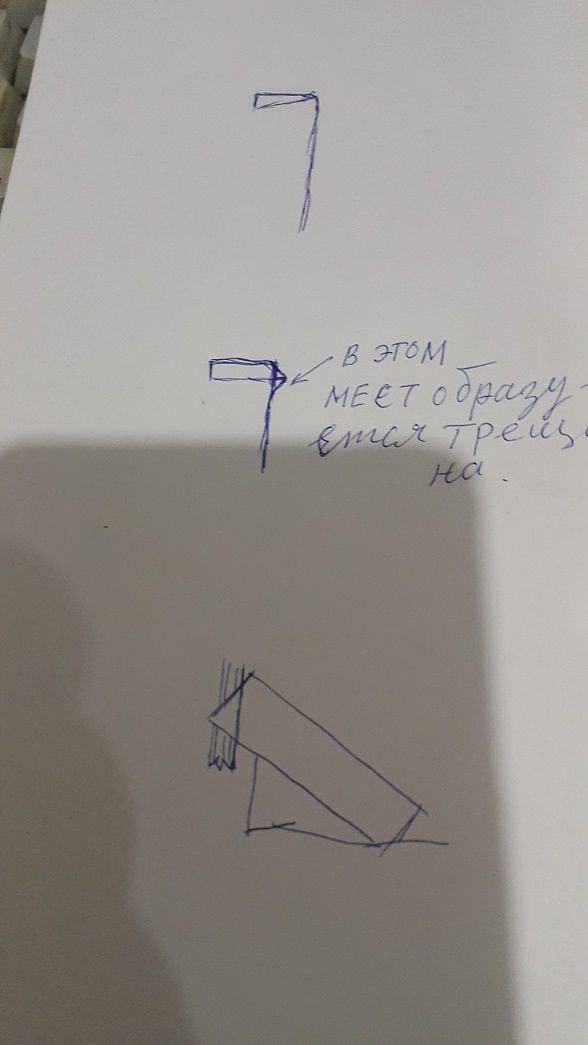 в этом
мест образу-
ется трещи
на.